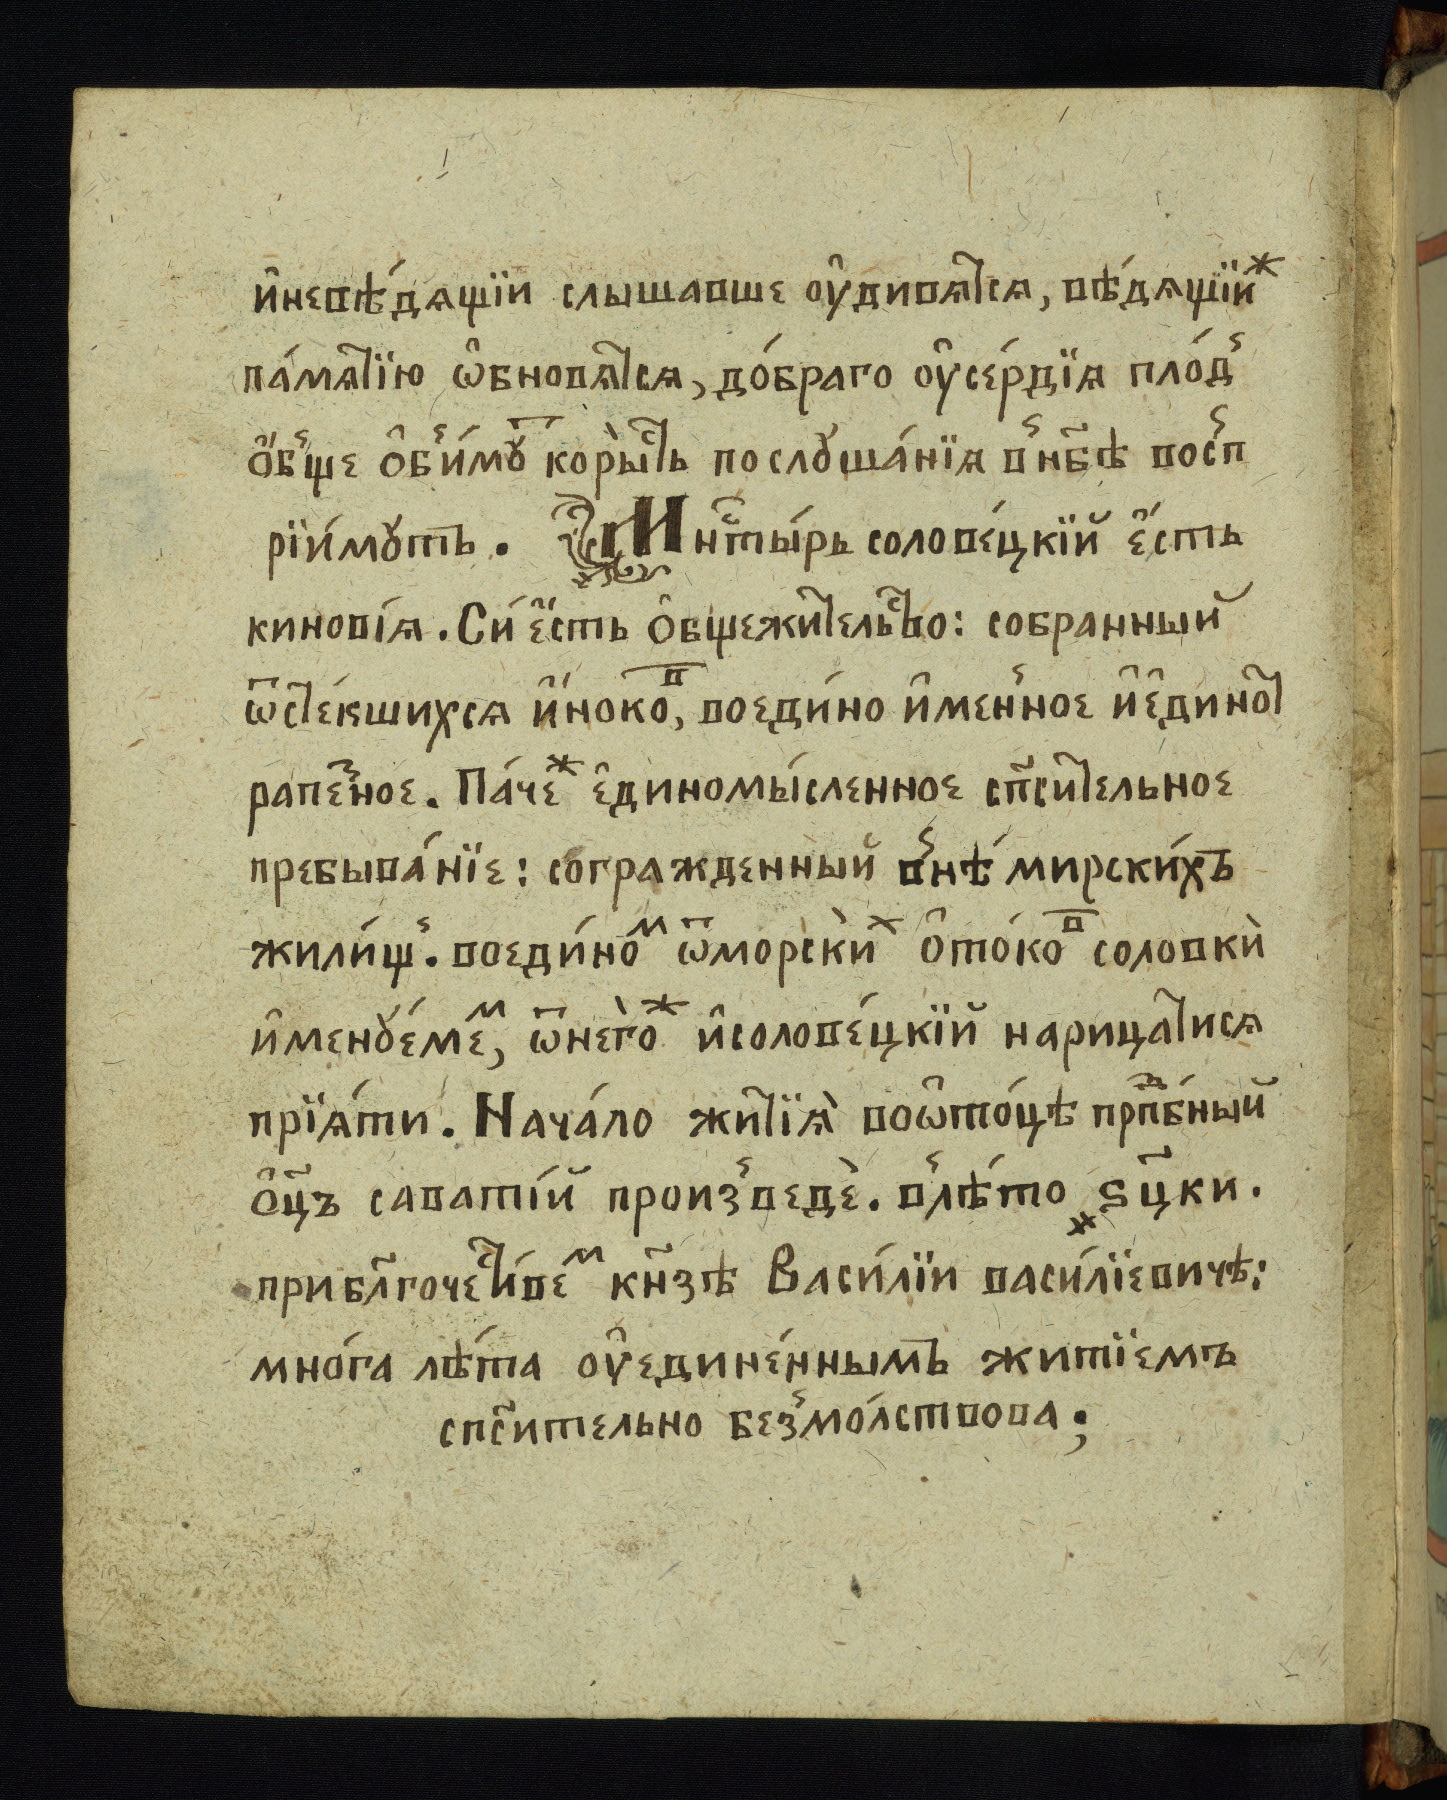 и҆невѣ́дѧщїи слышавше оу҆дивѧ́тсѧ, вѣ́дѧщїиж
па́мѧтїю ѡ҆бновѧ́тсѧ, до́браго оу҆се́рдїѧ пло́д̾
ѻ҆́б̾ще ѻ҆б̾и́мꙋт коры́сть послꙋша́нїѧ в̾нб҃ѣ восп̾
рїи́мꙋтъ. Мнⷭ҇ты́рь солове́цкїй є҆́сть
кинові́ѧ. Си́ є҆́сть ѻ҆бщежи́тельство: собранный
ѿсте́кшихсѧ и҆́нокѡв, воеди́но и҆мен̾ное и҆є҆динот
рапе́з̾ное. Па́чеж є҆диномы́сленное сп҃си́тельное
пребыва́нїе: согражденный в̾нѣ́ мирски́хъ
жили́щ̾. воеди́ном ѿморски́х ѻ҆то́ков соловкѝ
и҆менꙋ́емем, ѿнего́ж и҆солове́цкїй нарица́тисѧ
прїѧ́ти. Нача́ло житїѧ̀ воѡ҆то́цѣ прпⷣбный
ѻ҆ц҃ъ савати́й произ̾ведѐ. в̾лѣ́то ҂ѕц҃ки.
прибл҃гоче́стивем кн҃зѣ Васи́лїи васи́лїевичѣ:
мно́га лѣ́та оу҆едине́ннымъ житїемъ
сп҃сительно без̾мо́лствова;